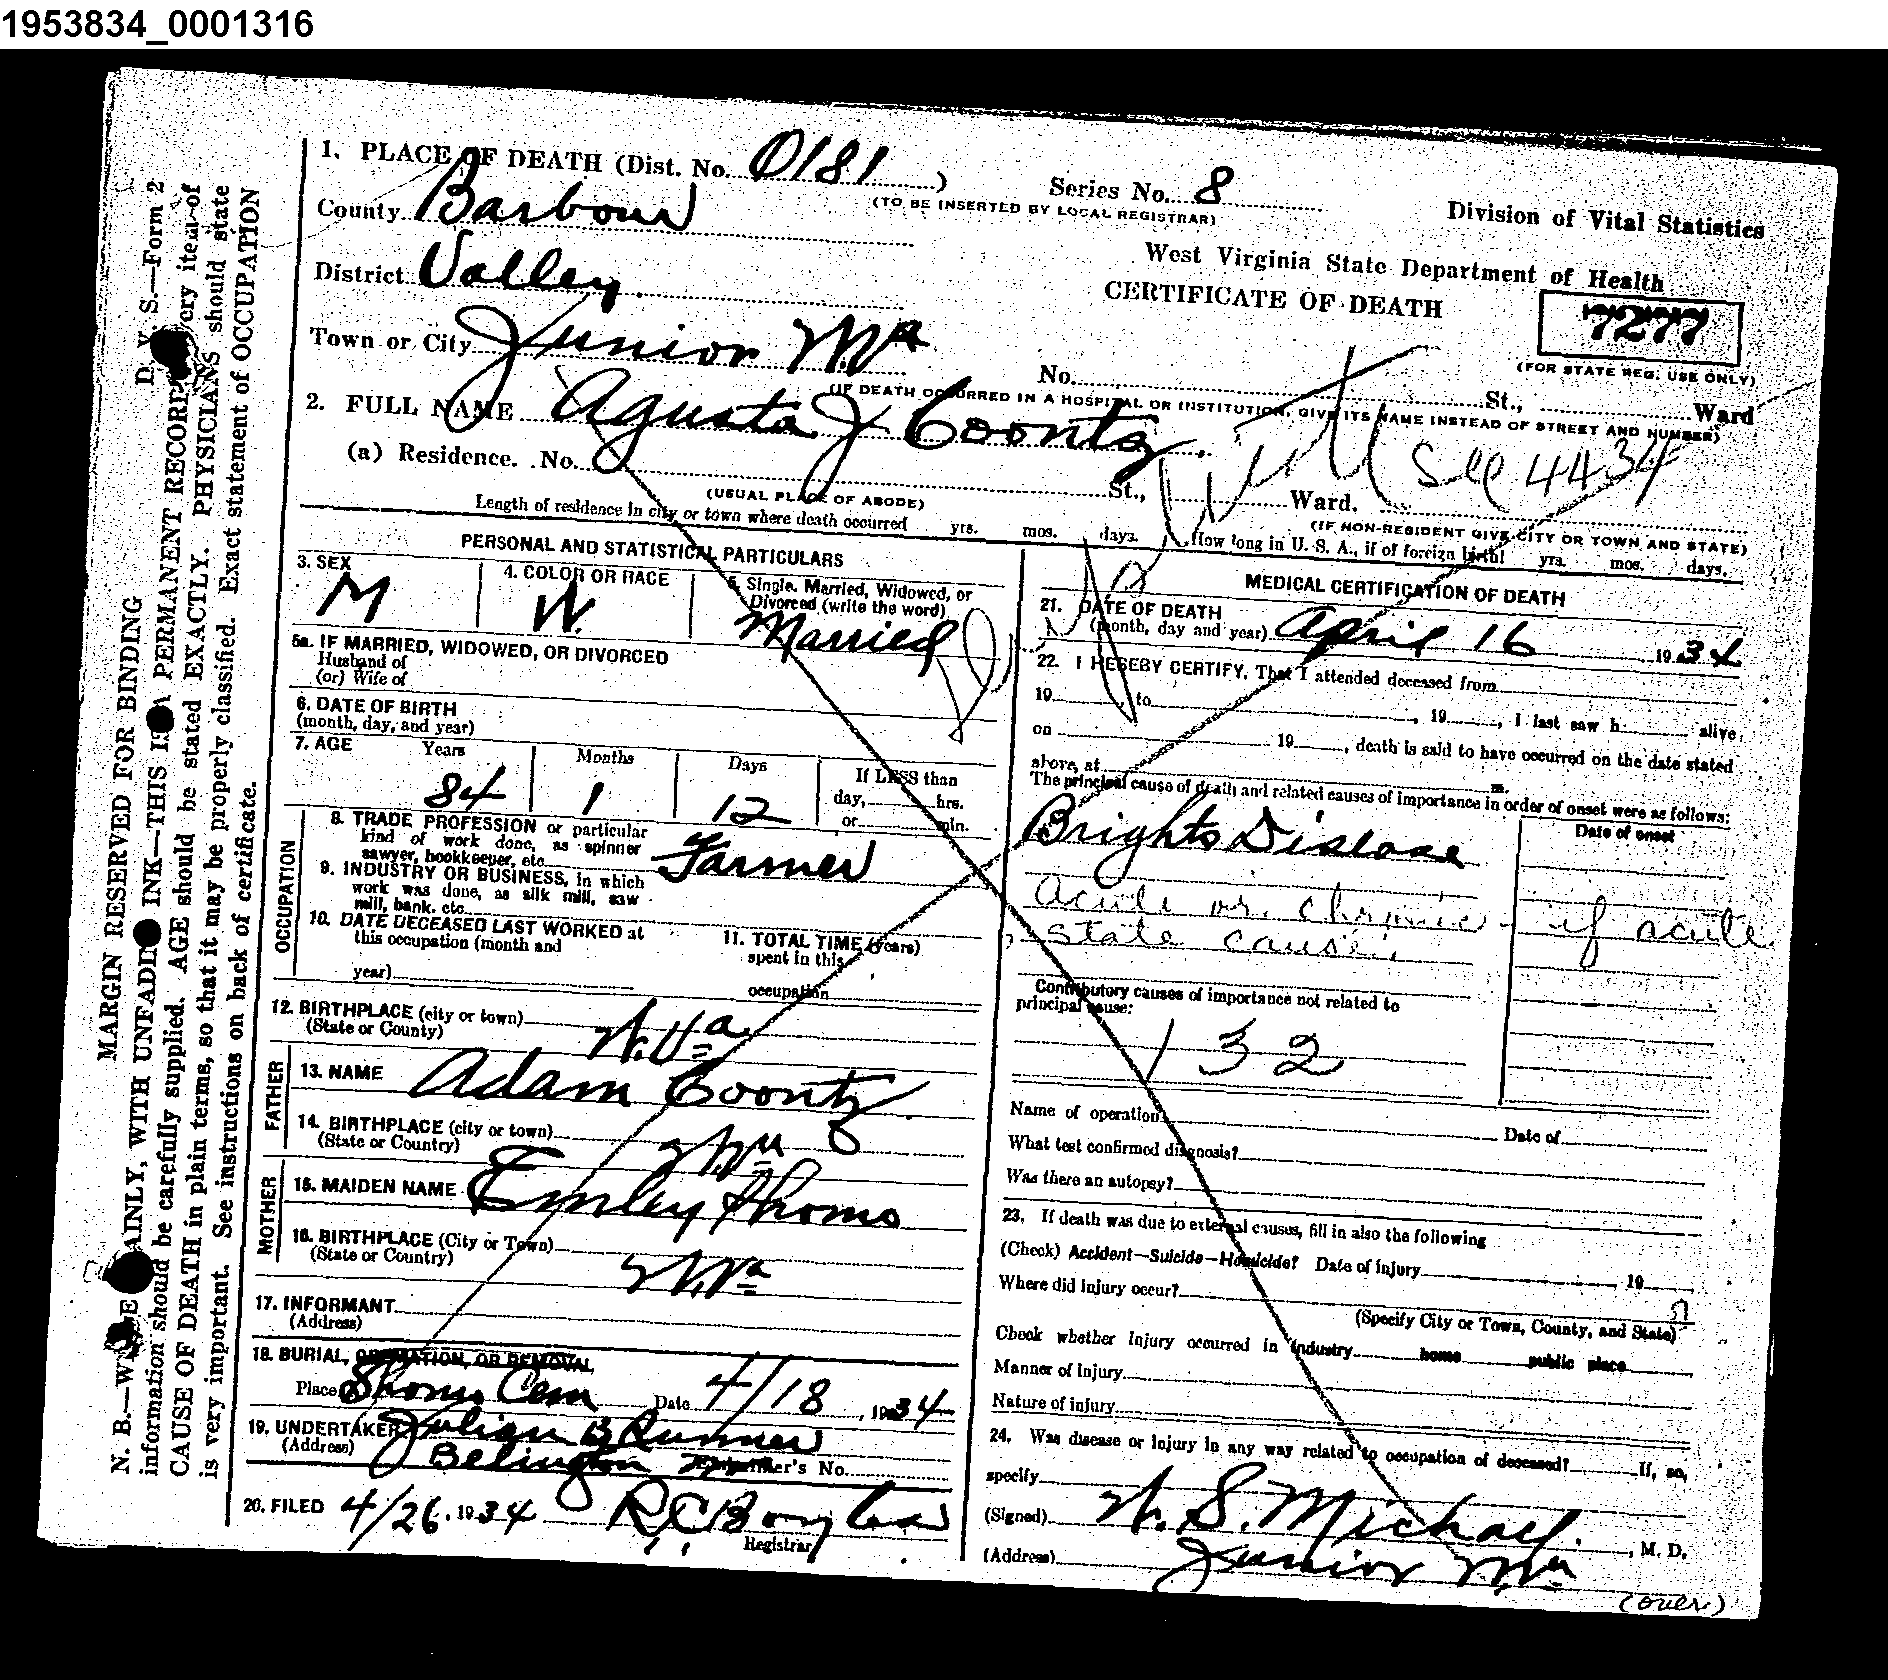 1953834_0001316
1. PLACE OF DEATH (Dist. No. 0181 )
Series No. 8
(TO BE INSERTED BY LOCAL REGISTRAR)
County Barbour
Division of Vital Statistics
West Virginia State Department of Health
District Valley
CERTIFICATE OF DEATH
7277
(FOR STATE REG. USE ONLY)
Town or City Junior W.Va
No. St., Ward
(IF DEATH OCCURRED IN A HOSPITAL OR INSTITUTION, GIVE ITS NAME INSTEAD OF STREET AND NUMBER)
2. FULL NAME Agusta J Coontz
See 4434
(a) Residence. No. St., Ward.
(USUAL PLACE OF ABODE)
(IF NON-RESIDENT GIVE CITY OR TOWN AND STATE)
Length of residence in city or town where death occurred yrs. mos. days. How long in U. S. A., if of foreign birth? yrs. mos. days.
PERSONAL AND STATISTICAL PARTICULARS
3. SEX
M
4. COLOR OR RACE
W.
5. Single. Married, Widowed, or
Divorced (write the word)
Married
5a. IF MARRIED, WIDOWED, OR DIVORCED
Husband of
(or) Wife of
6. DATE OF BIRTH
(month, day, and year)
7. AGE Years Months Days If LESS than
day, hrs.
or min.
84 1 12
OCCUPATION
8. TRADE PROFESSION or particular
kind of work done, as spinner
sawyer, bookkeeper, etc. Farmer
9. INDUSTRY OR BUSINESS, in which
work was done, as silk mill, saw
mill, bank, etc.
10. DATE DECEASED LAST WORKED at
this occupation (month and
year)
11. TOTAL TIME (years)
spent in this
occupation
12. BIRTHPLACE (city or town) W.Va
(State or County)
FATHER
13. NAME Adam Coontz
14. BIRTHPLACE (city or town) W.Va
(State or Country)
MOTHER
15. MAIDEN NAME Emley Shoms
16. BIRTHPLACE (City or Town) W.Va
(State or Country)
17. INFORMANT
(Address)
18. BURIAL, CREMATION, OR REMOVAL
Place Shoms Cem Date 4/18, 1934
19. UNDERTAKER Julian B Runner
(Address) Belington Embalmer's No.
20. FILED 4/26, 1934
Registrar
MEDICAL CERTIFICATION OF DEATH
21. DATE OF DEATH
(month, day and year) April 16 1934
22. I HEREBY CERTIFY, That I attended deceased from
19 , to , 19 , I last saw h alive
on 19 , death is said to have occurred on the date stated
above, at m.
The principal cause of death and related causes of importance in order of onset were as follows:
Date of onset
Brights Disease
Acute or chronic - if acute
state cause.
Contributory causes of importance not related to
principal cause:
132
Name of operation Date of
What test confirmed diagnosis?
Was there an autopsy?
23. If death was due to external causes, fill in also the following
(Check) Accident—Suicide—Homicide? Date of injury 19
Where did injury occur?
(Specify City or Town, County, and State)
Check whether injury occurred in industry home public place
Manner of injury
Nature of injury
24. Was disease or injury in any way related to occupation of deceased? If, so,
specify
(Signed) W. S. Michael. , M. D.
(Address) Junior W.Va
(over)
D. V. S.—Form 2
MARGIN RESERVED FOR BINDING
N. B.—WRITE PLAINLY, WITH UNFADING INK—THIS IS A PERMANENT RECORD. Every item of
information should be carefully supplied. AGE should be stated EXACTLY. PHYSICIANS should state
CAUSE OF DEATH in plain terms, so that it may be properly classified. Exact statement of OCCUPATION
is very important. See instructions on back of certificate.